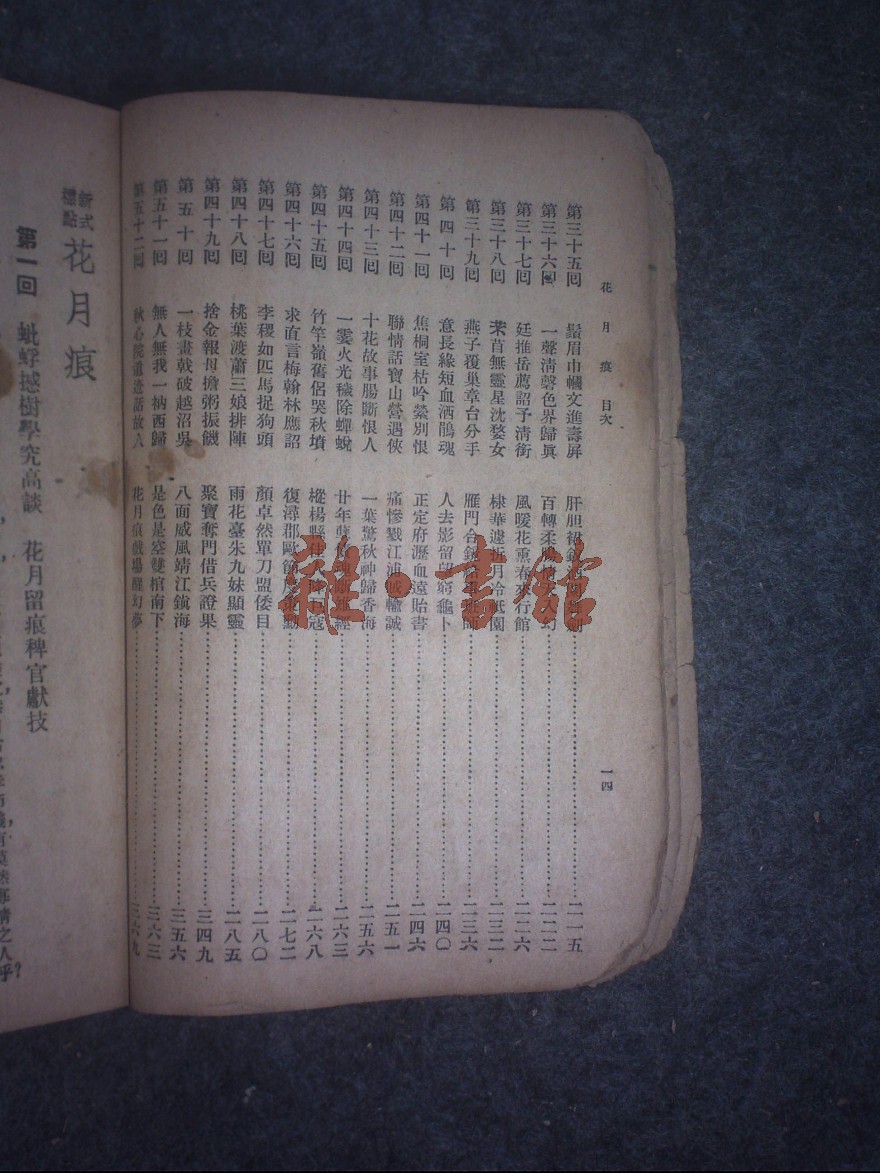 花月痕 目次
一四
第三十五回 鬚眉巾幗文進壽屏 肝胆裙釵酒闌舞劍 二一五
第三十六回 一聲清磬色界歸眞 百轉柔腸情人幻 二二二
第三十七回 廷推岳薦詔予清銜 風暖花熏春來行館 二二六
第三十八回 芣苢無靈星沈婺女 棣華遽折月冷祇園 二三二
第三十九回 燕子覆巢章台分手 雁門合鎮 班師 二三六
第四十回 意長緣短血洒鵑魂 人去影留望窮龜卜 二四〇
第四十一回 焦桐室枯吟縈別恨 正定府瀝血遠貽書 二四六
第四十二回 聯情話寶山營遇俠 痛慘戮江浦賊輸誠 二五一
第四十三回 十花故事腸斷恨人 一葉驚秋神歸香海 二五六
第四十四回 一霎火光穢除蟬蛻 廿年孽債魂斷雉經 二六三
第四十五回 竹竿嶺舊侶哭秋墳 樅楊縣 降 寇 二六八
第四十六回 求直言梅翰林應詔 復潯郡歐節度策勳 二七二
第四十七回 李稷如匹馬捉狗頭 顏卓然單刀盟倭目 二八〇
第四十八回 桃葉渡蕭三娘排陣 雨花臺朱九妹顯靈 二八五
第四十九回 捨金報母擔粥振饑 聚寶奪門借兵證果 三四九
第五十回 一枝畫戟破越沼吳 八面威風靖江鎭海 三五六
第五十一回 無人無我一衲西歸 是色是空雙棺南下 三六三
第五十二回 秋心院遺迹話故人 花月痕戲場醒幻夢 三六九
新式標點 花月痕
第一回 蚍蜉撼樹學究高談 花月留痕稗官獻技
情之人乎?
雜·書館